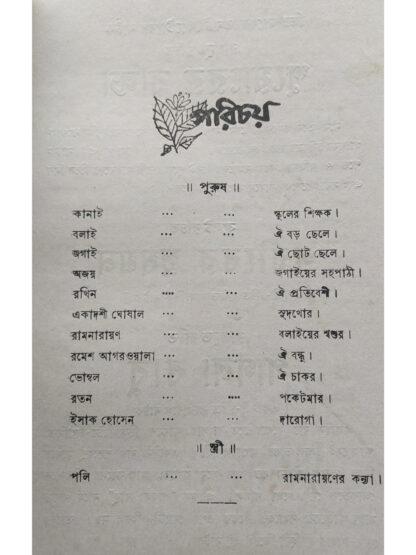 পরিচয়
॥ পুরুষ ॥
কানাই ... ... স্কুলের শিক্ষক।
বলাই ... ... ঐ বড় ছেলে।
জগাই ... ... ঐ ছোট ছেলে।
অজয় ... ... জগাইয়ের সহপাঠী।
রথিন .... ... ঐ প্রতিবেশী।
একাদশী ঘোষাল ... ... সুদখোর।
রামনারায়ণ ... ... বলাইয়ের শ্বশুর।
রমেশ আগরওয়ালা ... ... ঐ বন্ধু।
ভোম্বল ... ... ঐ চাকর।
রতন ... .... পকেটমার।
ইসাক হোসেন ... ... দারোগা।
॥ স্ত্রী ॥
পলি ... ... রামনারায়ণের কন্যা।